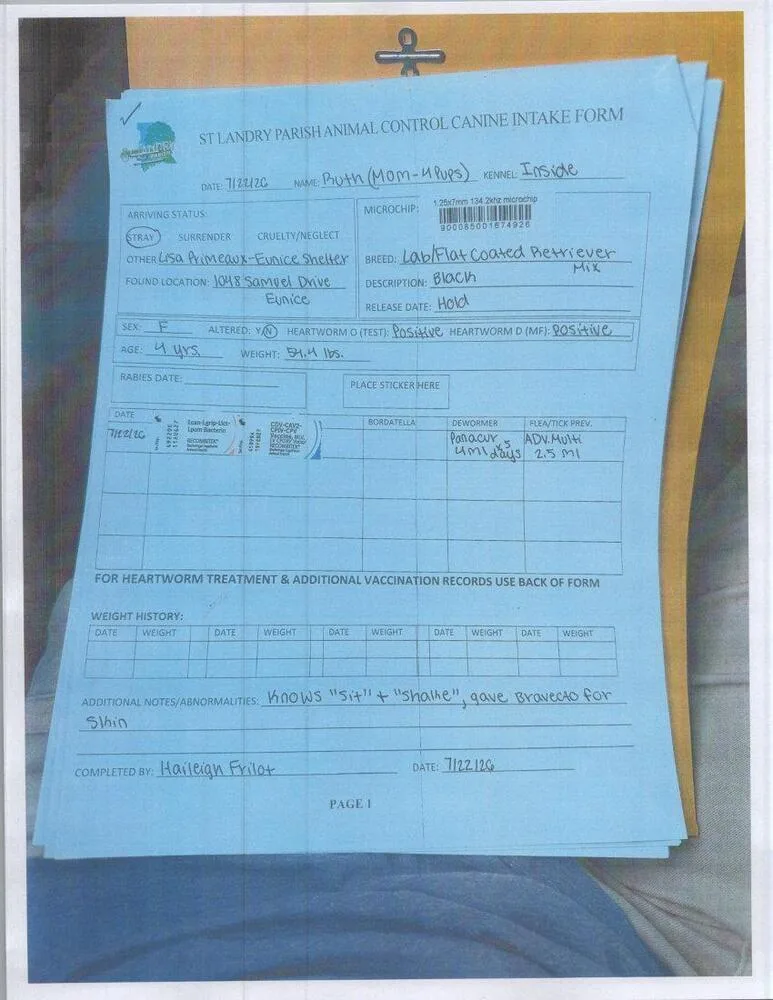 ST LANDRY PARISH ANIMAL CONTROL CANINE INTAKE FORM
DATE: 7/22/26 NAME: Ruth (Mom-4 Pups) KENNEL: Inside
ARRIVING STATUS:
STRAY SURRENDER CRUELTY/NEGLECT
OTHER Lisa Primeaux-Eunice Shelter
FOUND LOCATION: 1048 Samuel Drive
Eunice
MICROCHIP: 1.25x7mm 134.2khz microchip
900085001674926
BREED: Lab/Flat Coated Retriever
Mix
DESCRIPTION: Black
RELEASE DATE: Hold
SEX: F ALTERED: Y/N HEARTWORM O (TEST): Positive HEARTWORM D (MF): Positive
AGE: 4 yrs. WEIGHT: 54.4 lbs.
RABIES DATE: PLACE STICKER HERE
DATE BORDATELLA DEWORMER FLEA/TICK PREV.
7/22/26 Panacur x5 ADV. Multi
4ml days 2.5 ml
Lpom Bacterin
RECOMBITEK
CDV-CAV2-
CPIV-CPV
RECOMBITEK
FOR HEARTWORM TREATMENT & ADDITIONAL VACCINATION RECORDS USE BACK OF FORM
WEIGHT HISTORY:
DATE WEIGHT DATE WEIGHT DATE WEIGHT DATE WEIGHT DATE WEIGHT
ADDITIONAL NOTES/ABNORMALITIES: Knows "Sit" + "Shake", gave Bravecto for
Skin
COMPLETED BY: Haileigh Frilot DATE: 7/22/26
PAGE 1